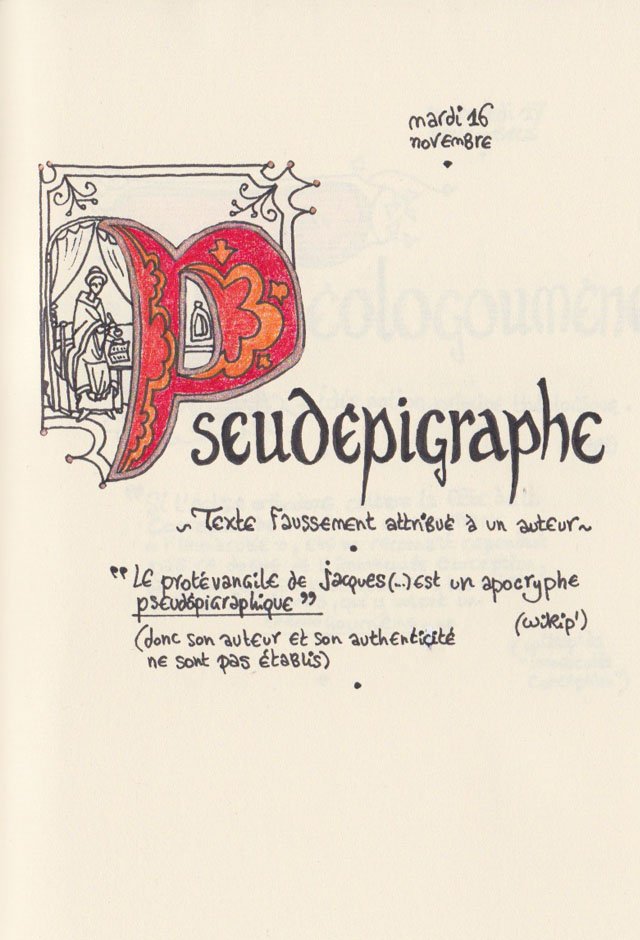 mardi 16
novembre
Pseudépigraphe
~ Texte faussement attribué à un auteur ~
"Le protévangile de Jacques (...) est un apocryphe
pseudépigraphique"
(wikip')
(donc son auteur et son authenticité
ne sont pas établis)